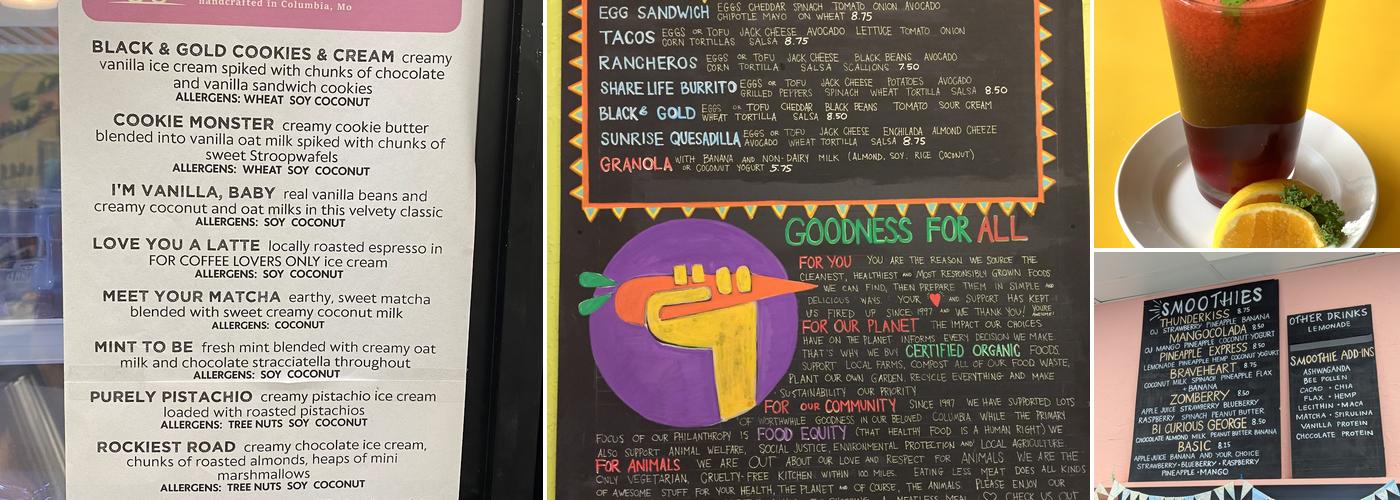 handcrafted in Columbia, Mo
BLACK & GOLD COOKIES & CREAM creamy
vanilla ice cream spiked with chunks of chocolate
and vanilla sandwich cookies
ALLERGENS: WHEAT SOY COCONUT
COOKIE MONSTER creamy cookie butter
blended into vanilla oat milk spiked with chunks of
sweet Stroopwafels
ALLERGENS: WHEAT SOY COCONUT
I'M VANILLA, BABY real vanilla beans and
creamy coconut and oat milks in this velvety classic
ALLERGENS: SOY COCONUT
LOVE YOU A LATTE locally roasted espresso in
FOR COFFEE LOVERS ONLY ice cream
ALLERGENS: SOY COCONUT
MEET YOUR MATCHA earthy, sweet matcha
blended with sweet creamy coconut milk
ALLERGENS: COCONUT
MINT TO BE fresh mint blended with creamy oat
milk and chocolate stracciatella throughout
ALLERGENS: SOY COCONUT
PURELY PISTACHIO creamy pistachio ice cream
loaded with roasted pistachios
ALLERGENS: TREE NUTS SOY COCONUT
ROCKIEST ROAD creamy chocolate ice cream,
chunks of roasted almonds, heaps of mini
marshmallows
ALLERGENS: TREE NUTS SOY COCONUT
EGG SANDWICH EGGS CHEDDAR SPINACH TOMATO ONION AVOCADO
CHIPOTLE MAYO ON WHEAT 8.75
TACOS EGGS OR TOFU JACK CHEESE AVOCADO LETTUCE TOMATO ONION
CORN TORTILLAS SALSA 8.75
RANCHEROS EGGS OR TOFU JACK CHEESE BLACK BEANS AVOCADO
CORN TORTILLA SALSA SCALLIONS 7.50
SHARE LIFE BURRITO EGGS OR TOFU JACK CHEESE POTATOES AVOCADO
GRILLED PEPPERS SPINACH WHEAT TORTILLA SALSA 8.50
BLACK & GOLD EGGS OR TOFU CHEDDAR BLACK BEANS TOMATO SOUR CREAM
WHEAT TORTILLA SALSA 8.50
SUNRISE QUESADILLA EGGS OR TOFU JACK CHEESE ENCHILADA ALMOND CHEEZE
AVOCADO WHEAT TORTILLA SALSA 8.75
GRANOLA WITH BANANA AND NON-DAIRY MILK (ALMOND, SOY, RICE COCONUT)
OR COCONUT YOGURT 5.75
GOODNESS FOR ALL
FOR YOU YOU ARE THE REASON WE SOURCE THE
CLEANEST, HEALTHIEST AND MOST RESPONSIBLY GROWN FOODS
WE CAN FIND, THEN PREPARE THEM IN SIMPLE AND
DELICIOUS WAYS. YOUR ♥ AND SUPPORT HAS KEPT
US FIRED UP SINCE 1997 AND WE THANK YOU! YOU'RE AWESOME!
FOR OUR PLANET THE IMPACT OUR CHOICES
HAVE ON THE PLANET INFORMS EVERY DECISION WE MAKE.
THAT'S WHY WE BUY CERTIFIED ORGANIC FOODS,
SUPPORT LOCAL FARMS, COMPOST ALL OF OUR FOOD WASTE,
PLANT OUR OWN GARDEN, RECYCLE EVERYTHING AND MAKE
SUSTAINABILITY OUR PRIORITY
FOR OUR COMMUNITY SINCE 1997 WE HAVE SUPPORTED LOTS
OF WORTHWHILE GOODNESS IN OUR BELOVED COLUMBIA. WHILE THE PRIMARY
FOCUS OF OUR PHILANTHROPY IS FOOD EQUITY (THAT HEALTHY FOOD IS A HUMAN RIGHT) WE
ALSO SUPPORT ANIMAL WELFARE, SOCIAL JUSTICE, ENVIRONMENTAL PROTECTION AND LOCAL AGRICULTURE.
FOR ANIMALS WE ARE OUT ABOUT OUR LOVE AND RESPECT FOR ANIMALS. WE ARE THE
ONLY VEGETARIAN, CRUELTY-FREE KITCHEN WITHIN 100 MILES. EATING LESS MEAT DOES ALL KINDS
OF AWESOME STUFF FOR YOUR HEALTH, THE PLANET AND OF COURSE, THE ANIMALS. PLEASE ENJOY OUR
A MEATLESS MEAL ♡ CHECK US OUT
SMOOTHIES
THUNDERKISS 8.75
OJ STRAWBERRY PINEAPPLE BANANA
MANGOCOLADA 8.50
OJ MANGO PINEAPPLE COCONUT YOGURT
PINEAPPLE EXPRESS 8.50
LEMONADE PINEAPPLE HEMP COCONUT YOGURT
BRAVEHEART 8.75
COCONUT MILK SPINACH PINEAPPLE FLAX
+ BANANA
ZOMBERRY 8.50
APPLE JUICE STRAWBERRY BLUEBERRY
RASPBERRY SPINACH PEANUT BUTTER
BI CURIOUS GEORGE 8.50
CHOCOLATE ALMOND MILK PEANUT BUTTER BANANA
BASIC 8.15
APPLE JUICE BANANA AND YOUR CHOICE
STRAWBERRY • BLUEBERRY • RASPBERRY
PINEAPPLE • MANGO
OTHER DRINKS
LEMONADE
SMOOTHIE ADD-INS
ASHWAGANDA
BEE POLLEN
CACAO • CHIA
FLAX • HEMP
LECITHIN • MACA
MATCHA • SPIRULINA
VANILLA PROTEIN
CHOCOLATE PROTEIN